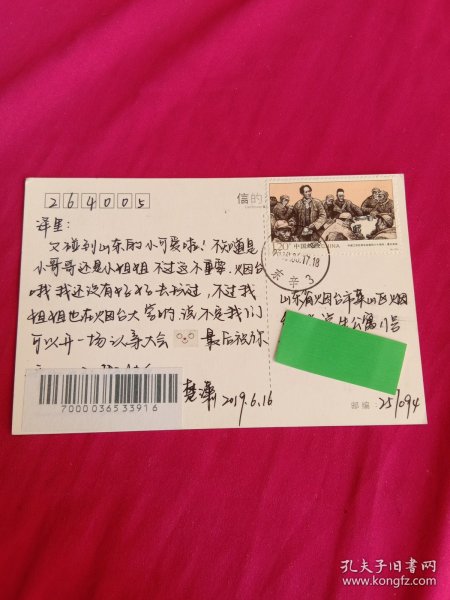 264005
信的
洋里：
又碰到山东的小可爱啦！不知道是
小哥哥还是小姐姐 不过这不重要.烟台
哦我还没有好好去玩过，不过我
姐姐也在烟台大学哟 说不定我们
可以开一场认亲大会 最后祝你
7000036533916
楚潇 2019.6.16
120
中国邮政 CHINA
17.18
3
山东省烟台市莱山区烟
学生公寓11号
邮编： 251094
孔夫子旧书网
www.kongfz.com